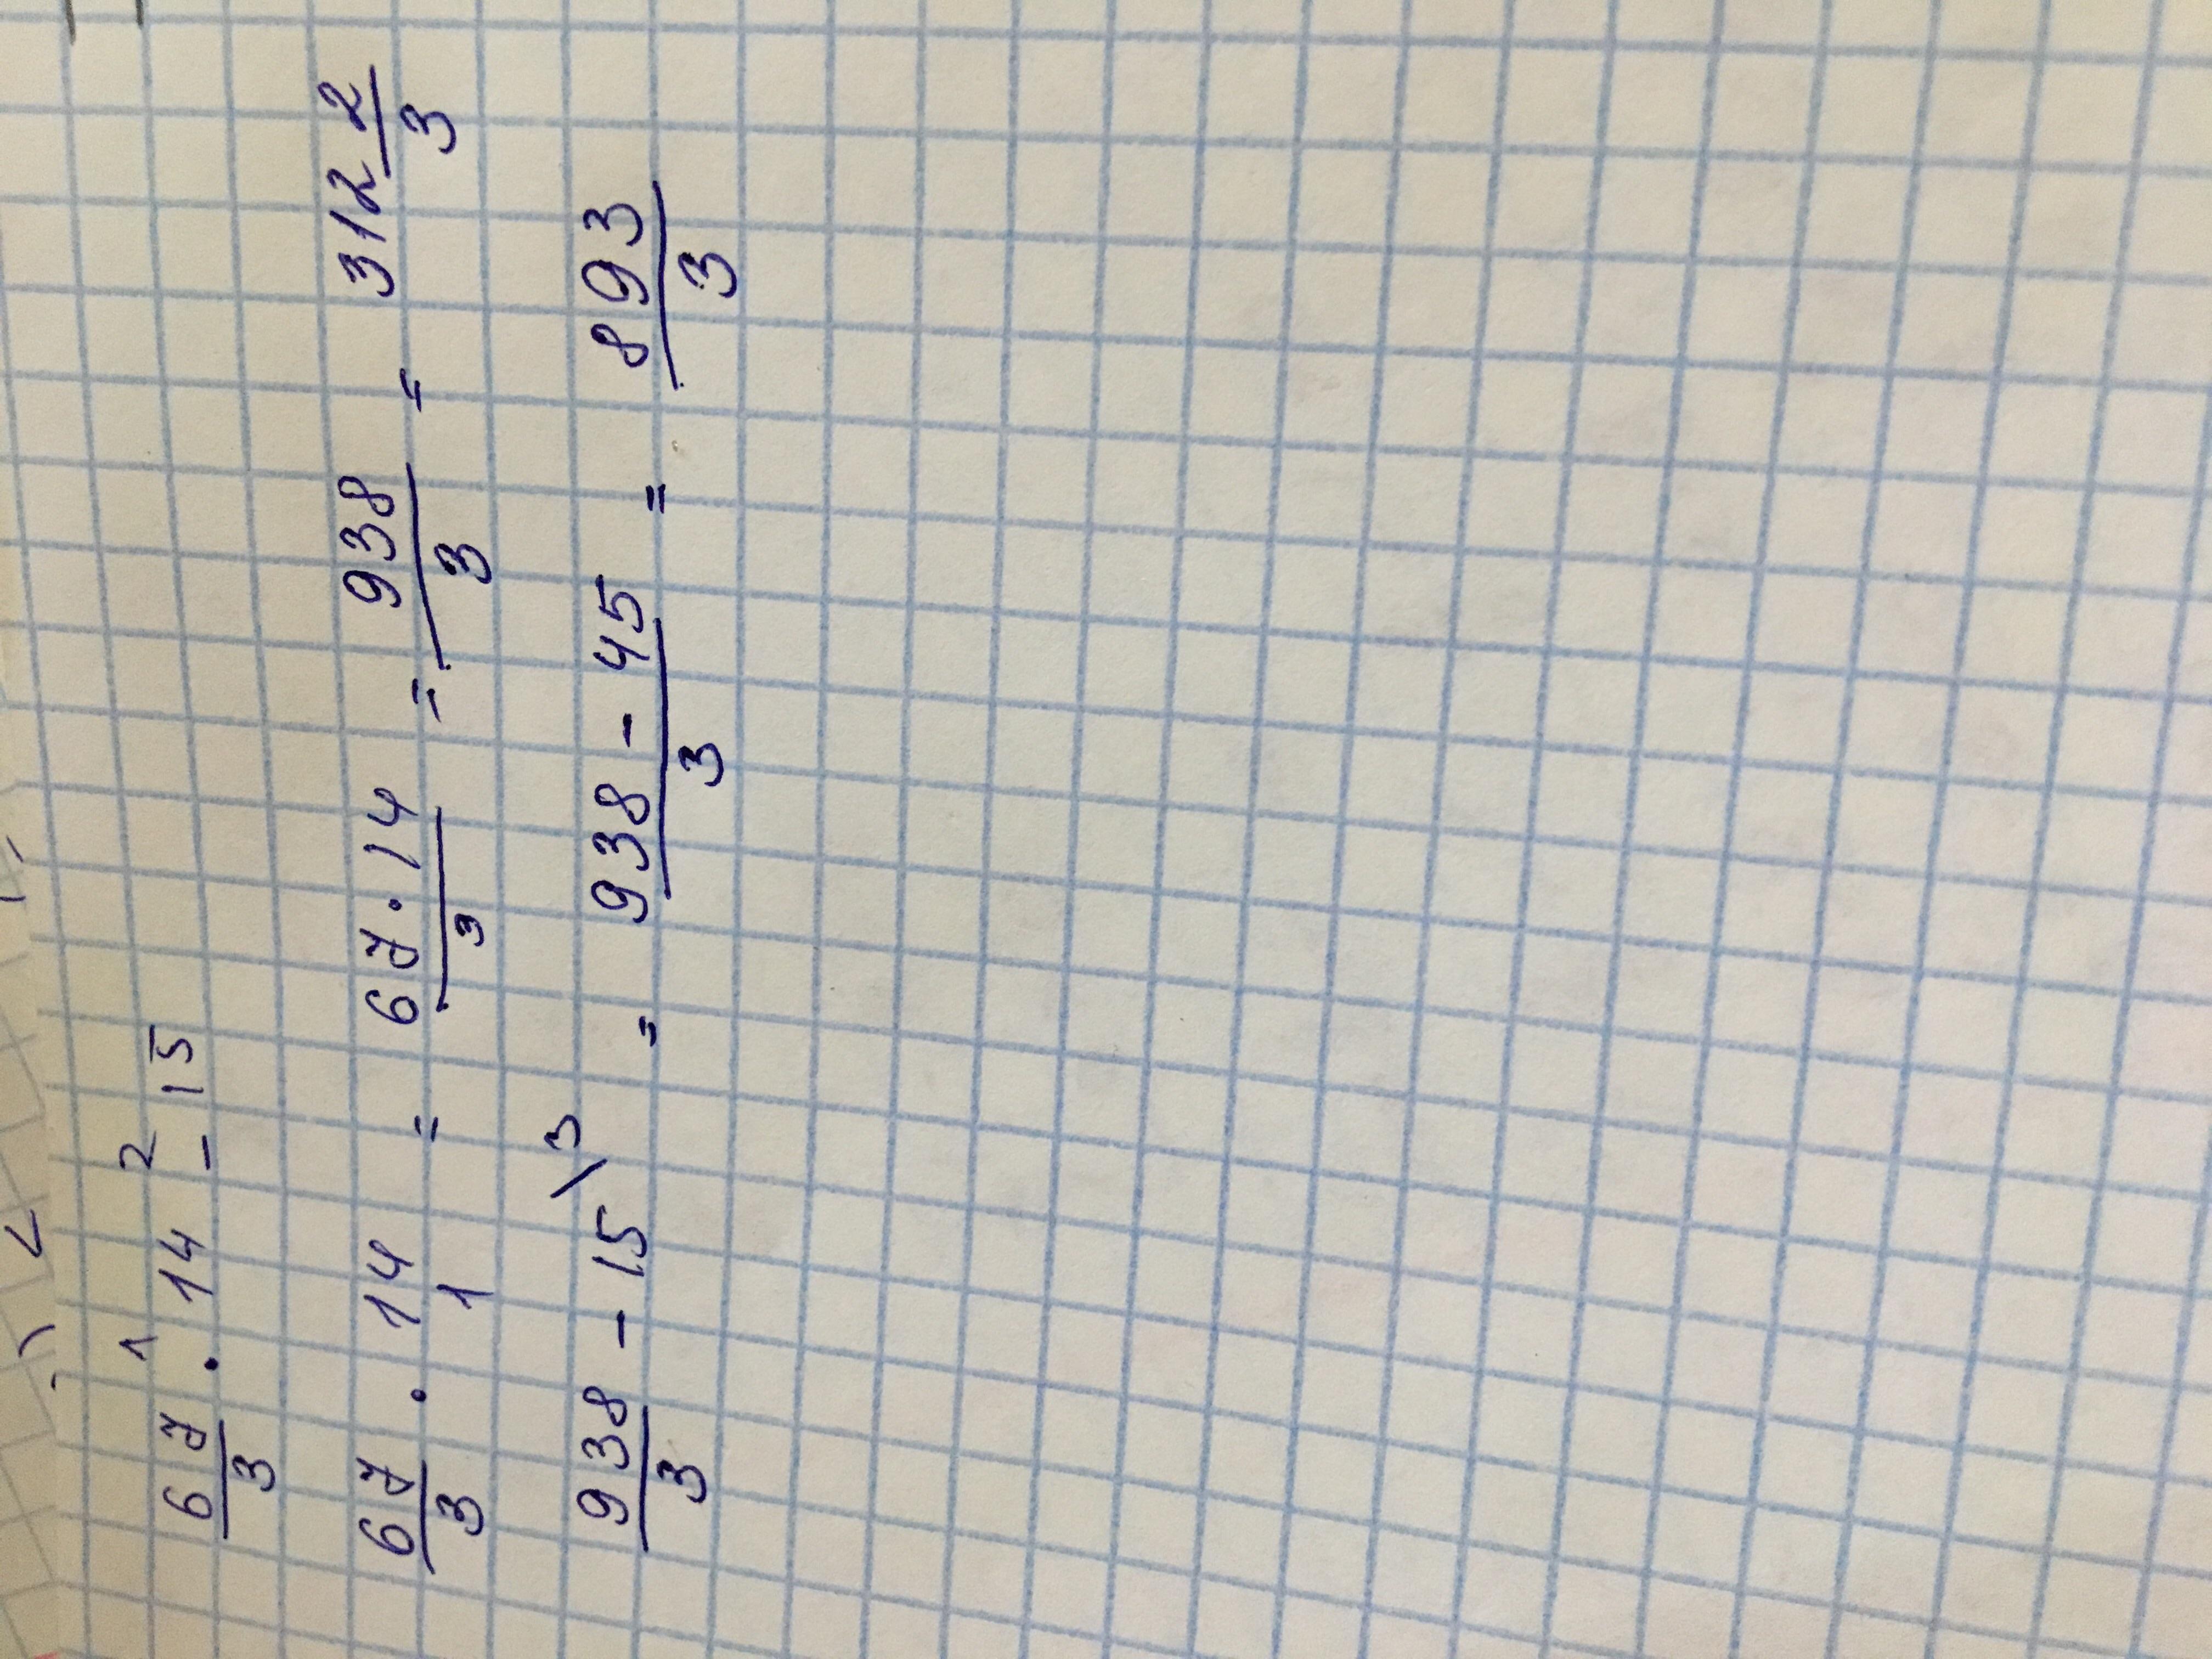 67/3 ·¹ 14 –² 15
67/3 · 14/1 = 67·14/3 = 938/3 = 312 2/3
938/3 – 15\3 = 938 – 45/3 = 893/3